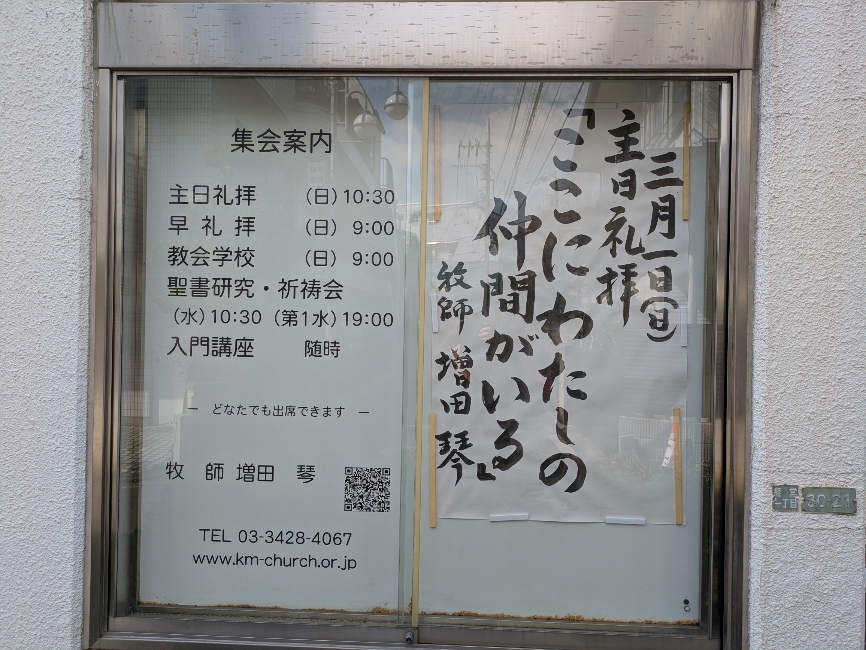 集会案内
主日礼拝 (日) 10:30
早礼拝 (日) 9:00
教会学校 (日) 9:00
聖書研究・祈祷会
(水) 10:30 (第1水) 19:00
入門講座 随時
― どなたでも出席できます ―
牧師 増田 琴
TEL 03-3428-4067
www.km-church.or.jp
三月一日(日)
主日礼拝
「ここにわたしの
仲間がいる」
牧師 増田 琴
30-21